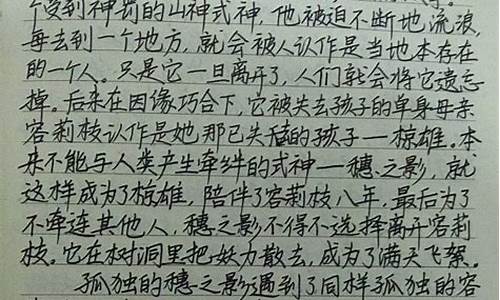 个受到神罚的山神式神,他被迫不断地流浪,
每去到一个地方,就会被人认作是当地本存在
的一个人。只是它一旦离开了,人们就会将它遗忘
掉。后来在因缘巧合下,它被失去孩子的单身母亲
容莉枝认作是她那已失踪的孩子—椋雄。本
来不能与人类产生牵绊的式神—穗之影,就
这样成为了椋雄,陪伴了容莉枝八年,最后为了
不牵连其他人,穗之影不得不选择离开容莉
枝。它在树洞里把妖力散去,成为了满天飞絮。
孤独的穗之影遇到了同样孤独的容